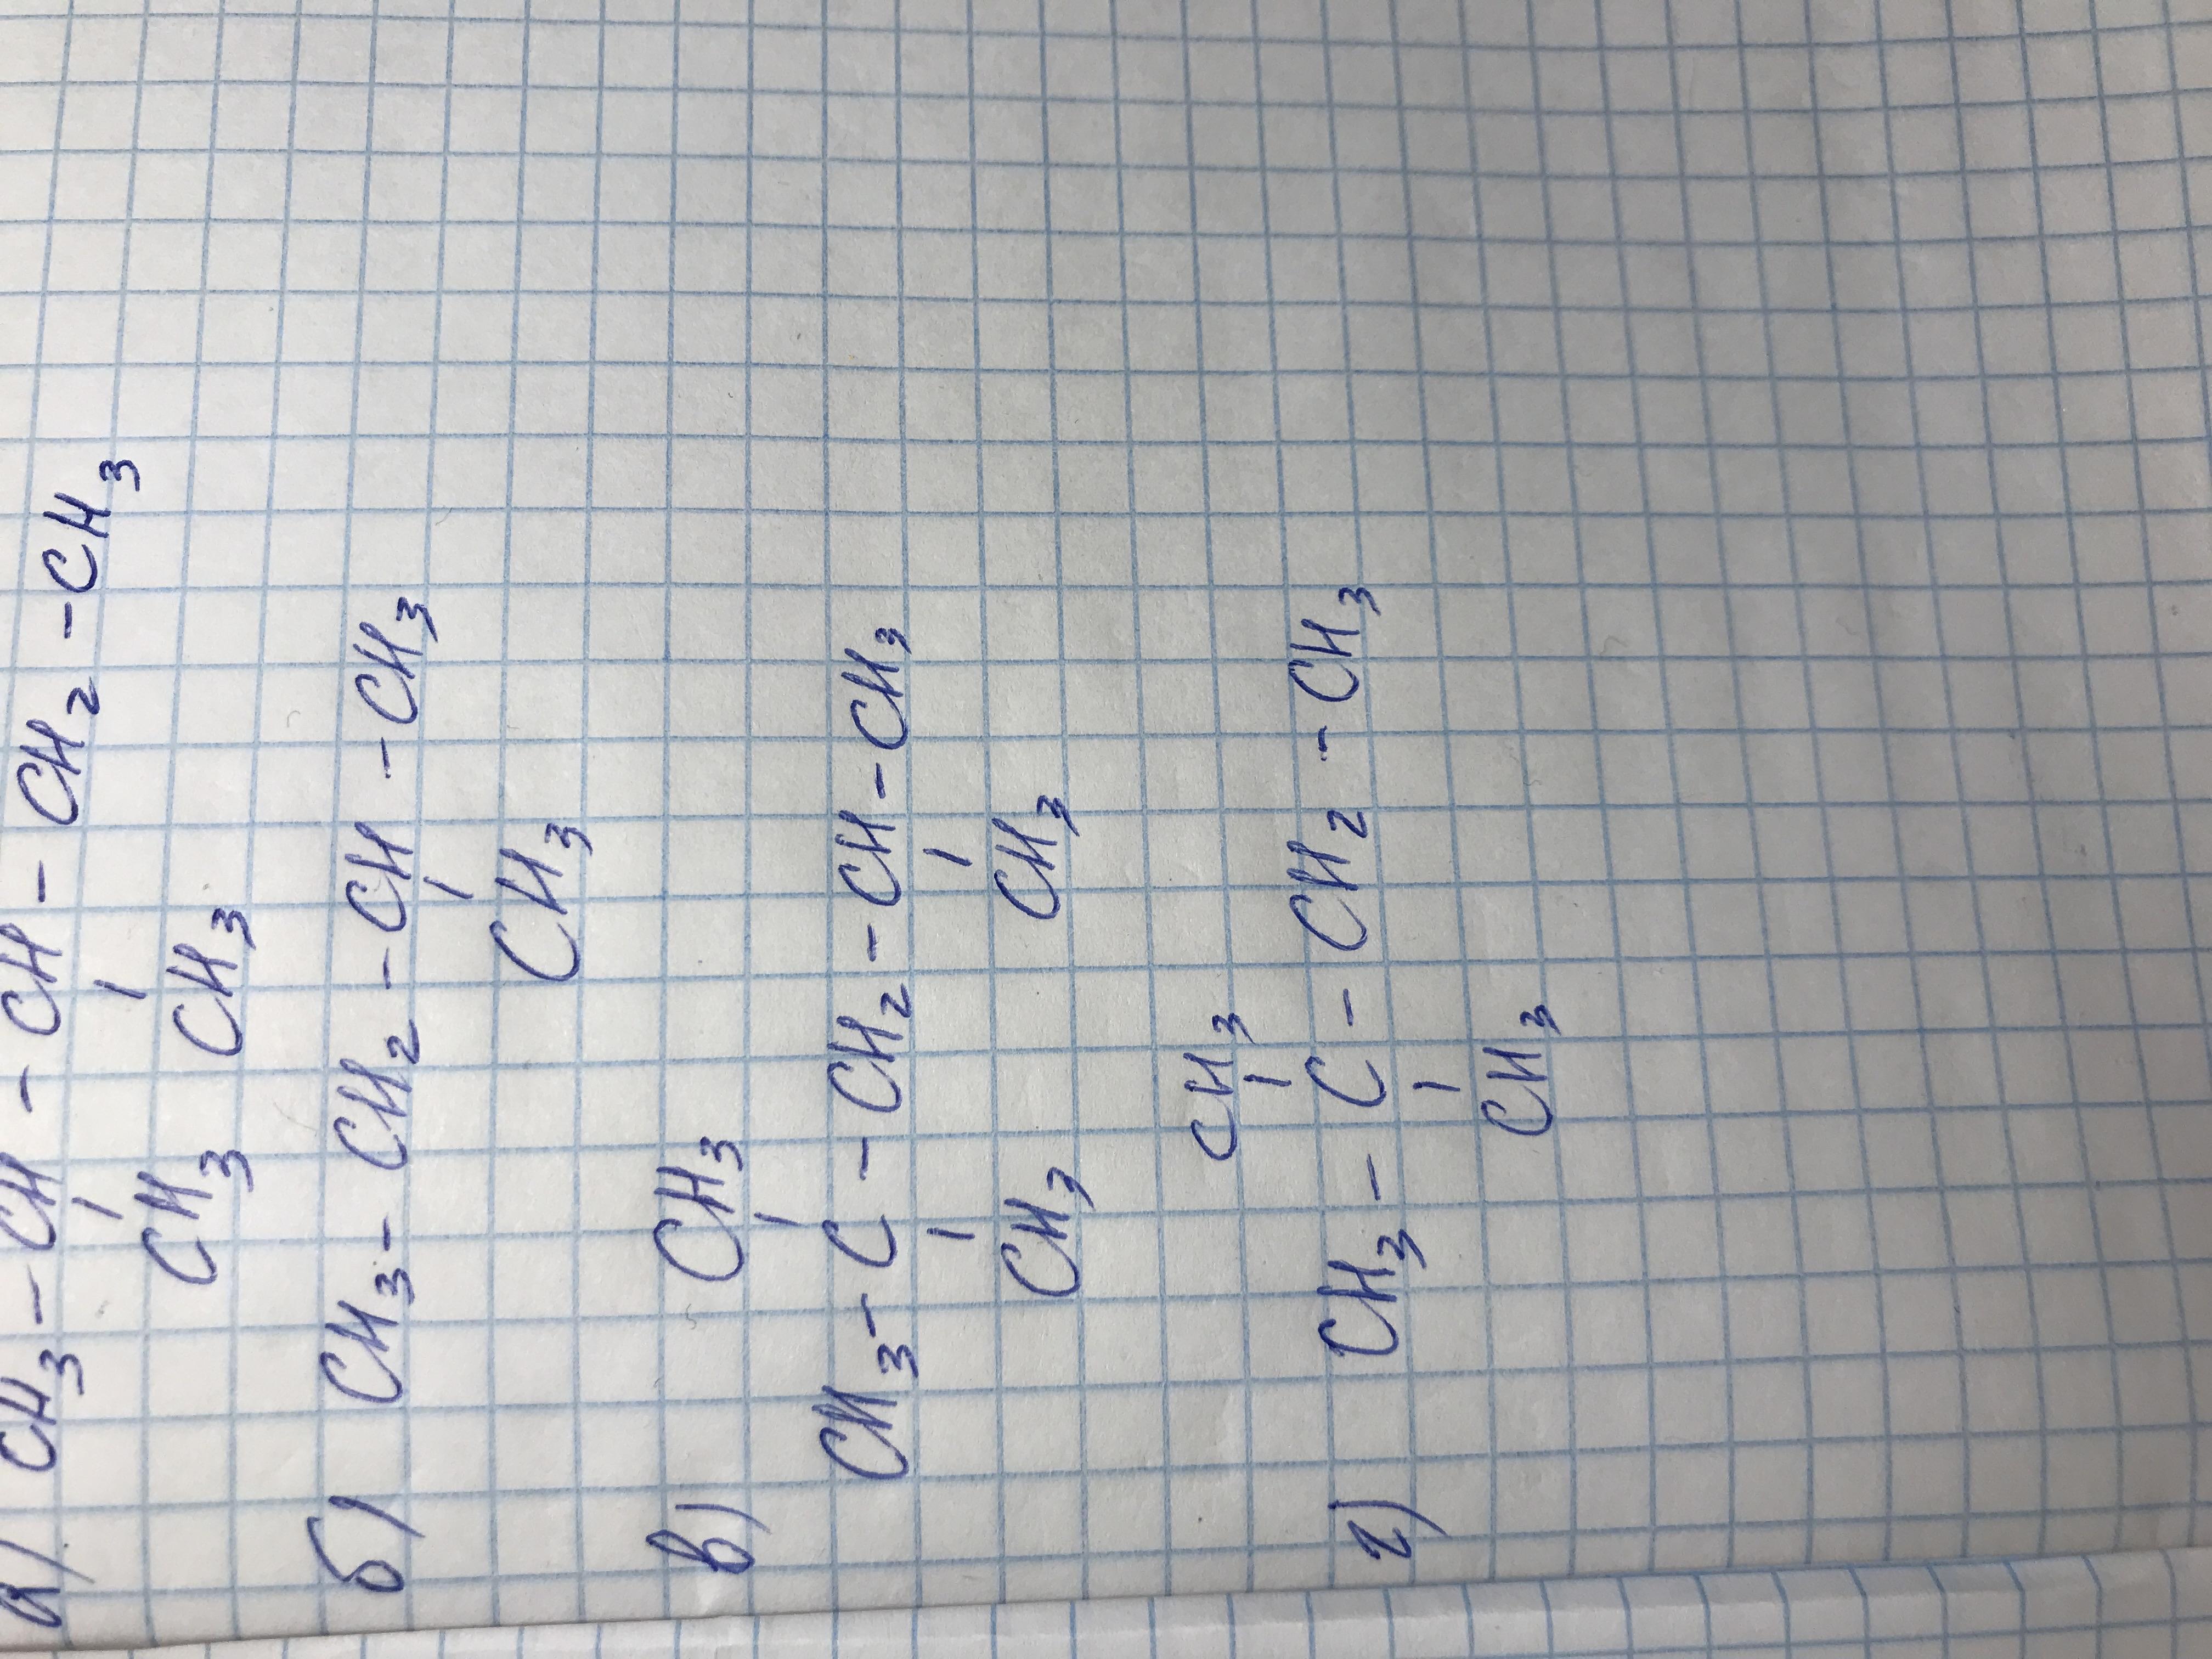 а) CH3 - CH - CH - CH2 - CH3
CH3 CH3
б) CH3 - CH2 - CH - CH3
CH3
в) CH3
CH3 - C - CH2 - CH - CH3
CH3 CH3
CH3
г) CH3 - C - CH2 - CH3
CH3